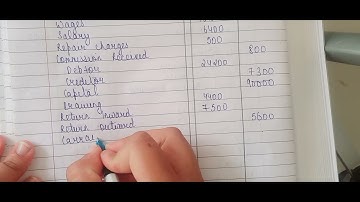 Wages
Salary 6400
Repair charges 500
Commission Received 800
Debtor 24200
Creditor 7300
Capital 90000
Drawing 4400
Return Inward 7500
Return outward 5600
Carria